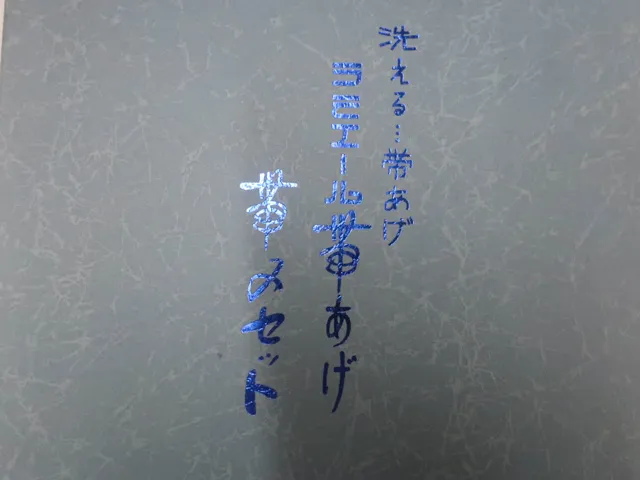 洗える…帯あげ
ラミエール帯あげ
帯〆セット